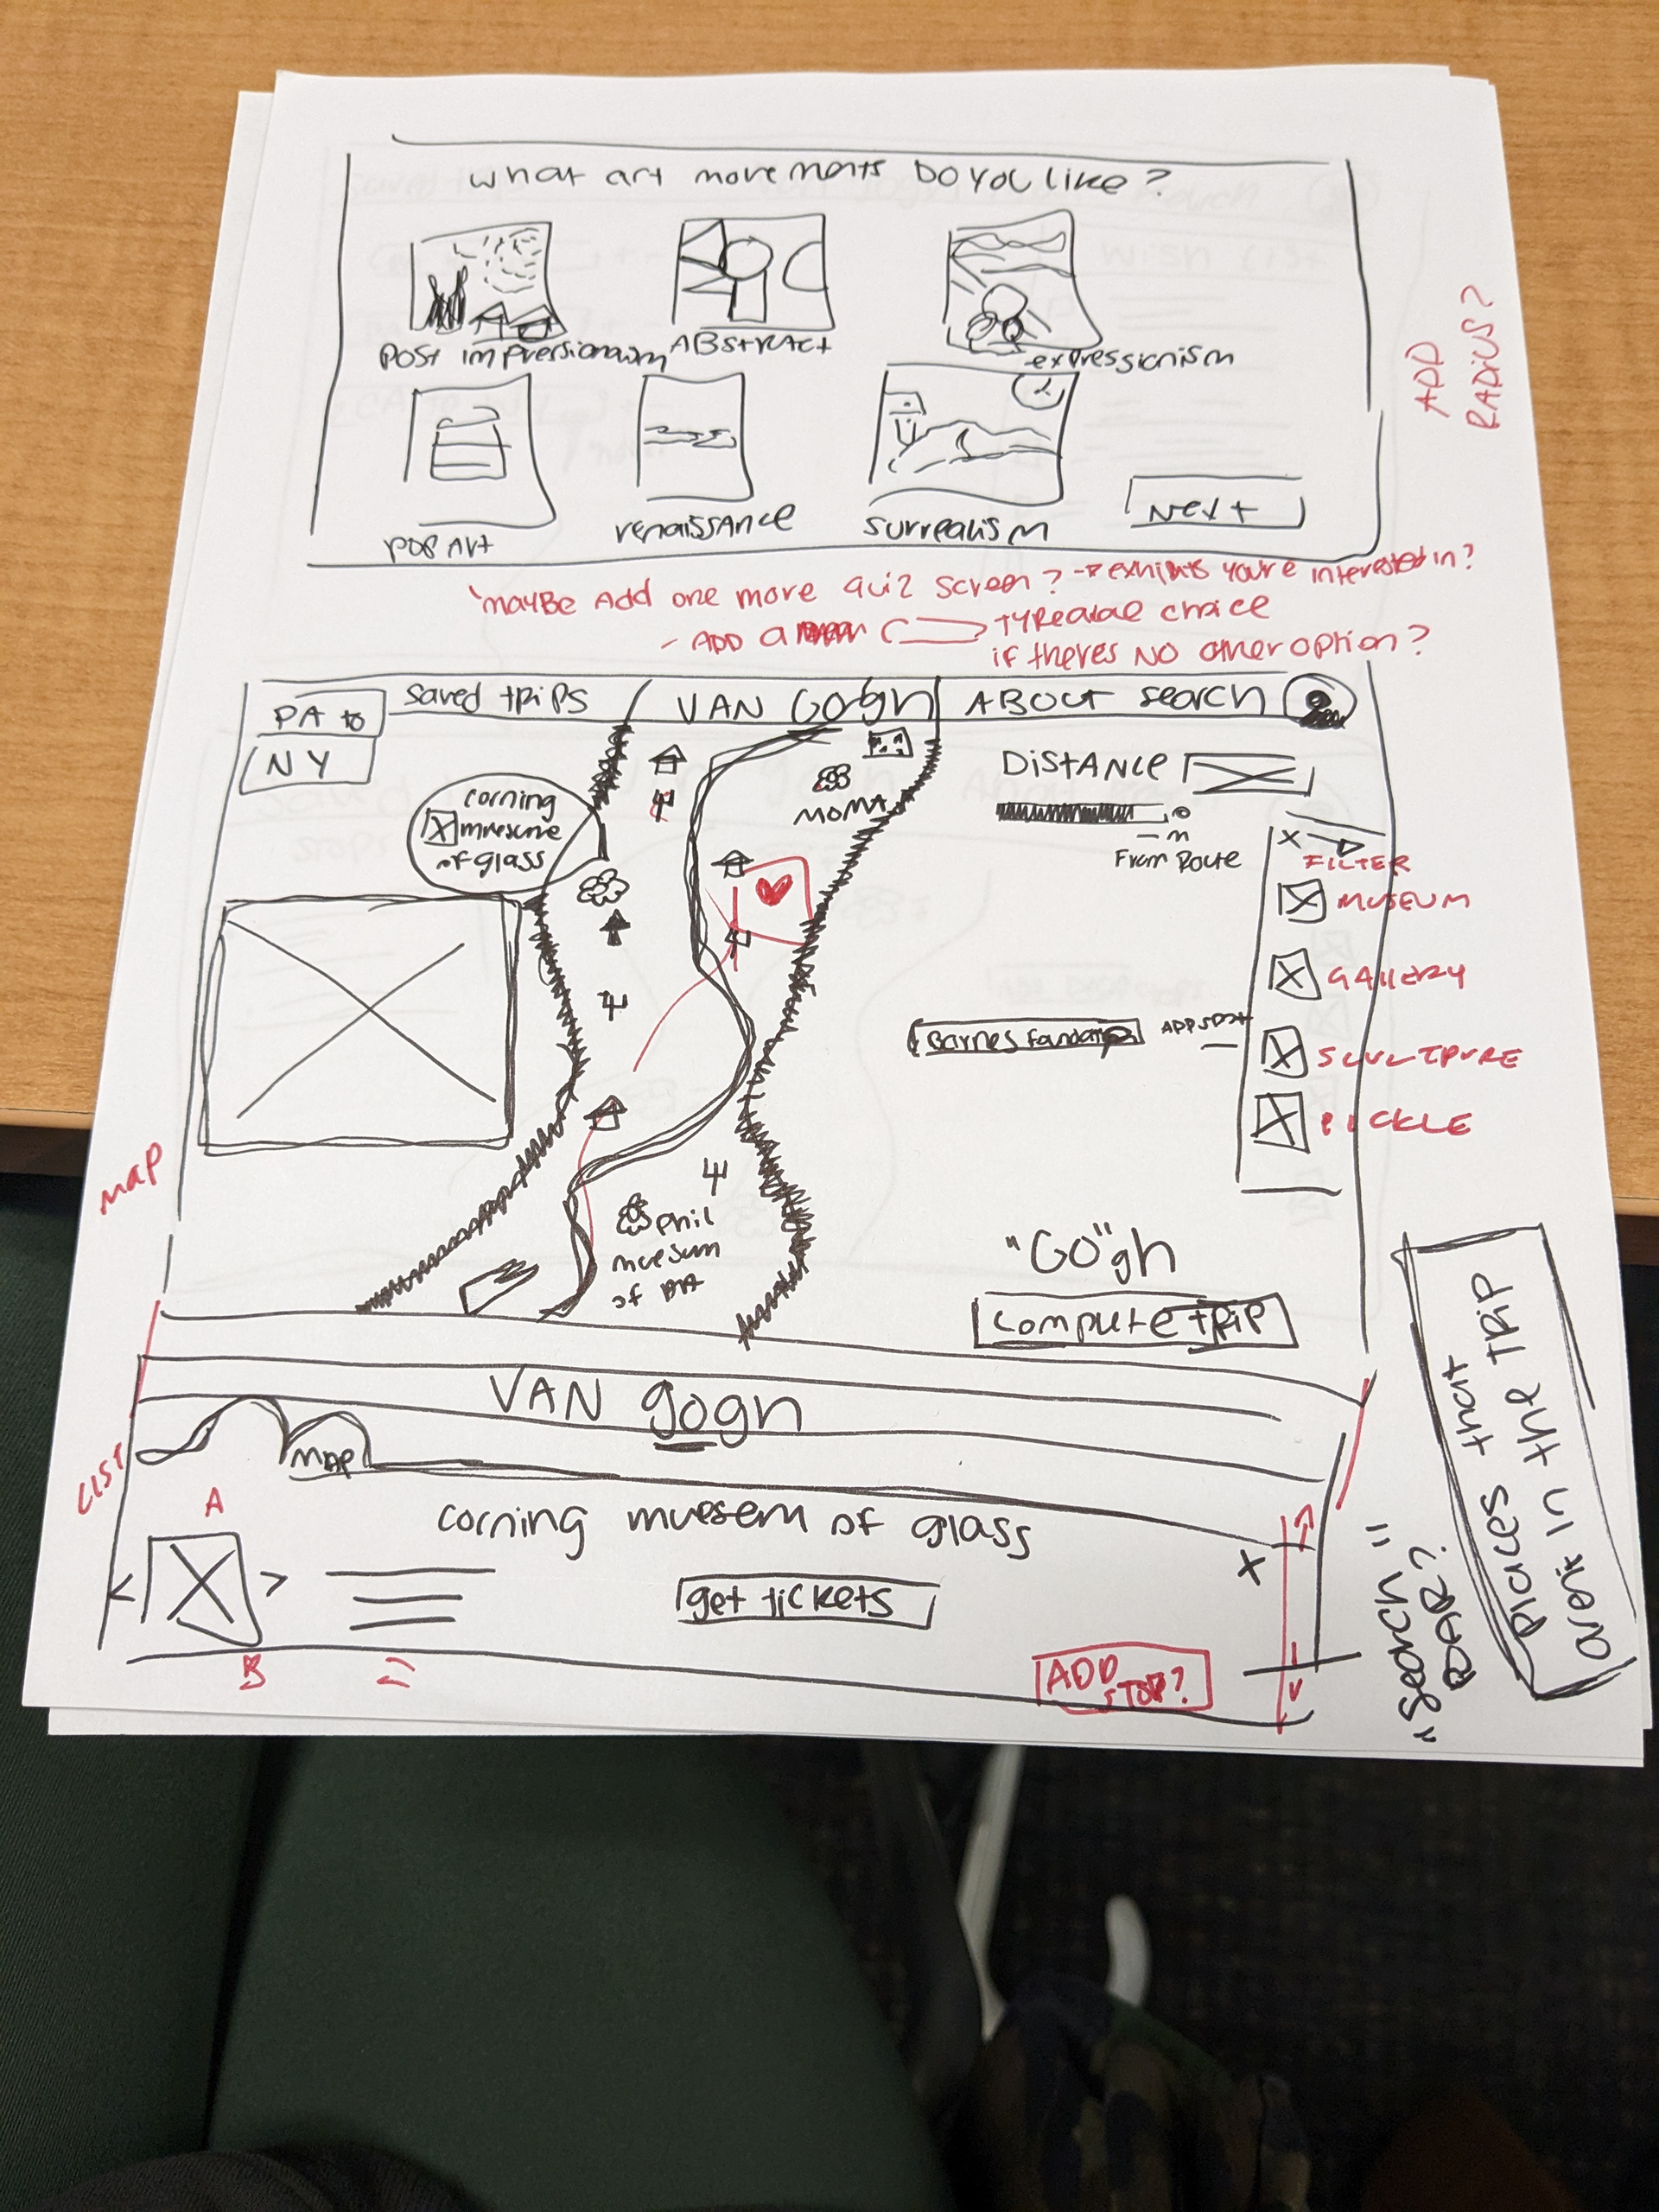 What art movements Do you like?
Post impressionism
ABstrAct
expressionism
pop Art
renaissance
surrealism
Next
ADD
RADIUS?
"MAYBE ADD one more quiz screen? → exhibits you're interested in?
- ADD a
TYPEable choice
if theres NO other option?
PA to
NY
saved trips
VAN GOgh
ABOUT
search
corning
museume
of glass
MOMA
DistANce
- m
From Route
X
FILTER
MUSEUM
GALLERY
SCULTPURE
PICKLE
Barnes
MAP
phil
muesum
of
"GO"gh
compute trip
VAN gogh
MAP
LIST
A
corning muesem of glass
X
< >
get tickets
B
ADD
STOP?
"search"
BAR?
places that
arent in the TRIP